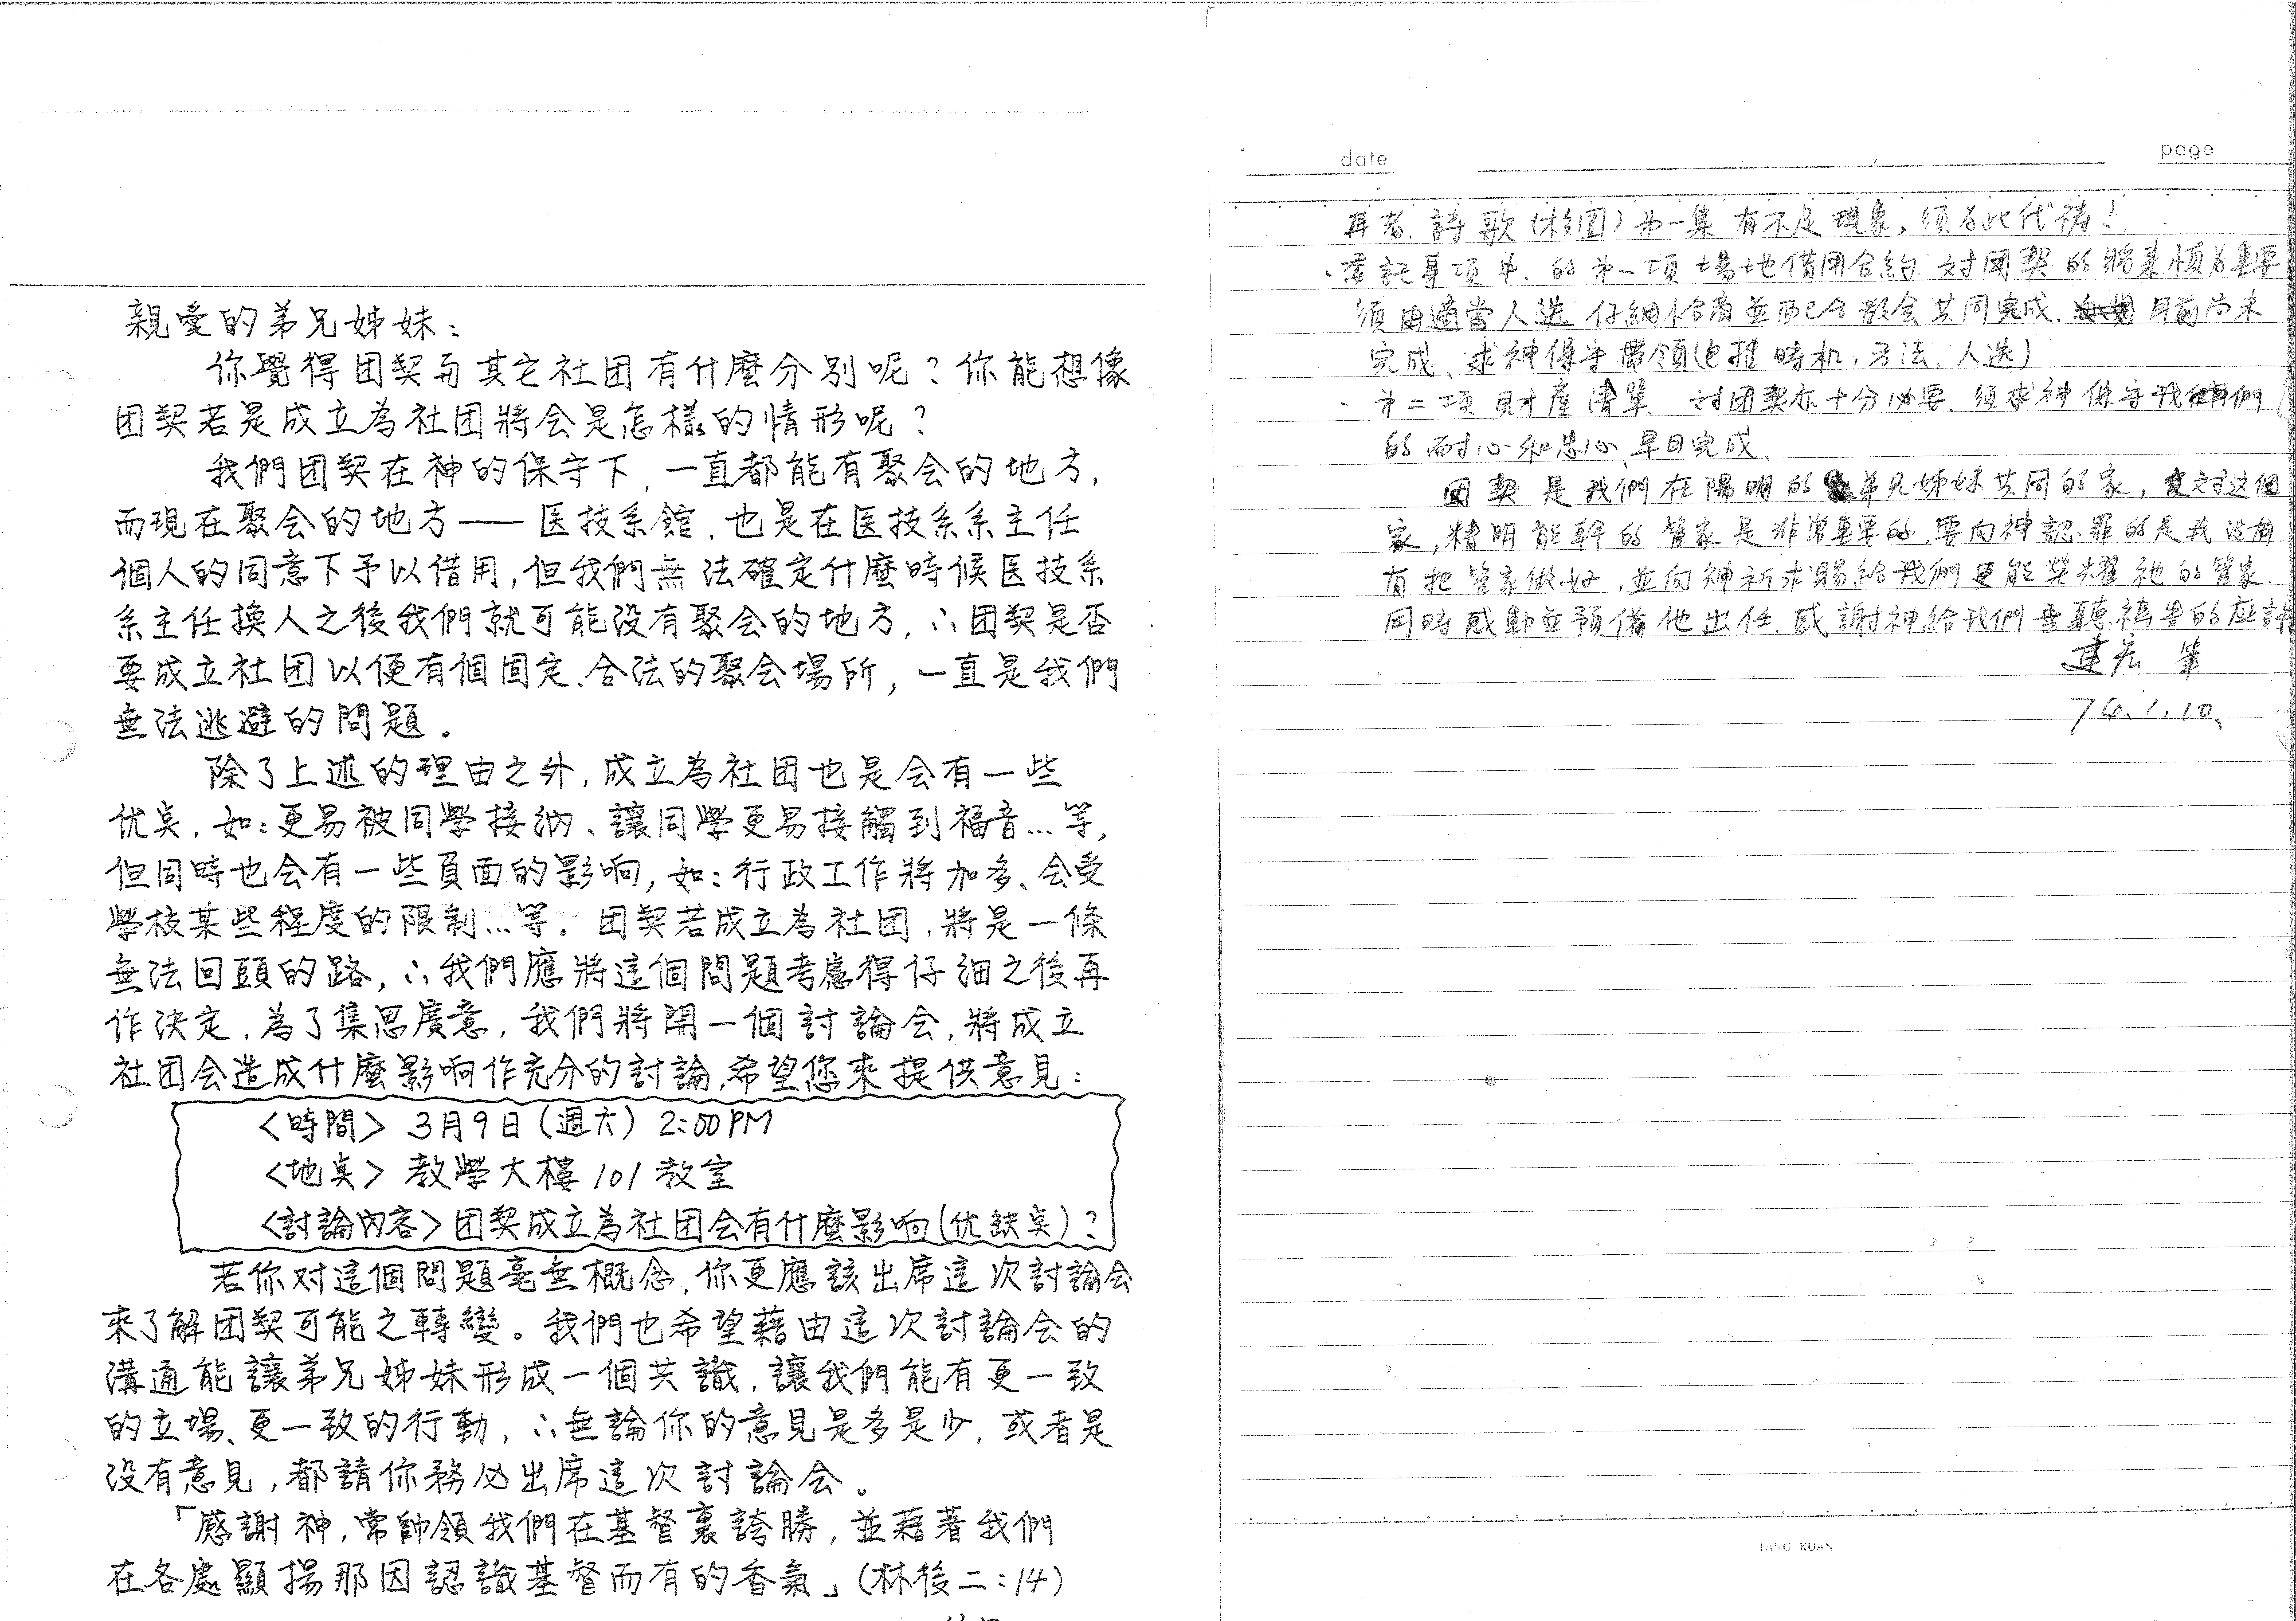 親愛的弟兄姊妹：
你覺得团契与其它社团有什麼分別呢？你能想像
团契若是成立為社团將会是怎樣的情形呢？
我們团契在神的保守下，一直都能有聚会的地方，
而現在聚会的地方——医技系館，也是在医技系系主任
個人的同意下予以借用，但我們無法確定什麼時候医技系
系主任換人之後我們就可能没有聚会的地方，∴团契是否
要成立社团以便有個固定、合法的聚会場所，一直是我們
無法逃避的問題。
除了上述的理由之外，成立為社团也是会有一些
优奌，如：更易被同學接納、讓同學更易接觸到福音…等，
但同時也会有一些負面的影响，如：行政工作將加多、会受
學校某些程度的限制…等。团契若成立為社团，將是一條
無法回頭的路，∴我們應將這個問題考慮得仔細之後再
作決定，為了集思廣意，我們將開一個討論会，將成立
社团会造成什麼影响作充分的討論，希望您來提供意見：
〈時間〉3月9日（週六）2:00PM
〈地奌〉教學大樓101教室
〈討論內容〉团契成立為社团会有什麼影响（优缺奌）？
若你对這個問題毫無概念，你更應該出席這次討論会
來了解团契可能之轉變。我們也希望藉由這次討論会的
溝通能讓弟兄姊妹形成一個共識，讓我們能有更一致
的立場、更一致的行動，∴無論你的意見是多是少，或者是
没有意見，都請你務必出席這次討論会。
「感謝神，常帥領我們在基督裏誇勝，並藉著我們
在各處顯揚那因認識基督而有的香氣」（林後二：14）
date
page
再者、詩歌（校園）第一集有不足現象，須為此代禱！
·委託事項中、的第一項場地借用合約、对团契的將來慎為重要
須由適當人选仔細洽商並配合教会共同完成、目前尚未
完成、求神保守帶領（包括時机，方法、人选）
·第二項財產清單、对团契亦十分必要、須求神保守我們
的耐心和忠心、早日完成、
团契是我們在陽明的弟兄姊妹共同的家，对這個
家，精明能幹的管家是非常重要的，要向神認罪的是我没有
有把管家做好，並向神祈求賜給我們更能榮耀祂的管家、
同時感動並預備他出任、感謝神給我們垂聽禱告的应許
建宏 筆
74.1.10、
LANG KUAN